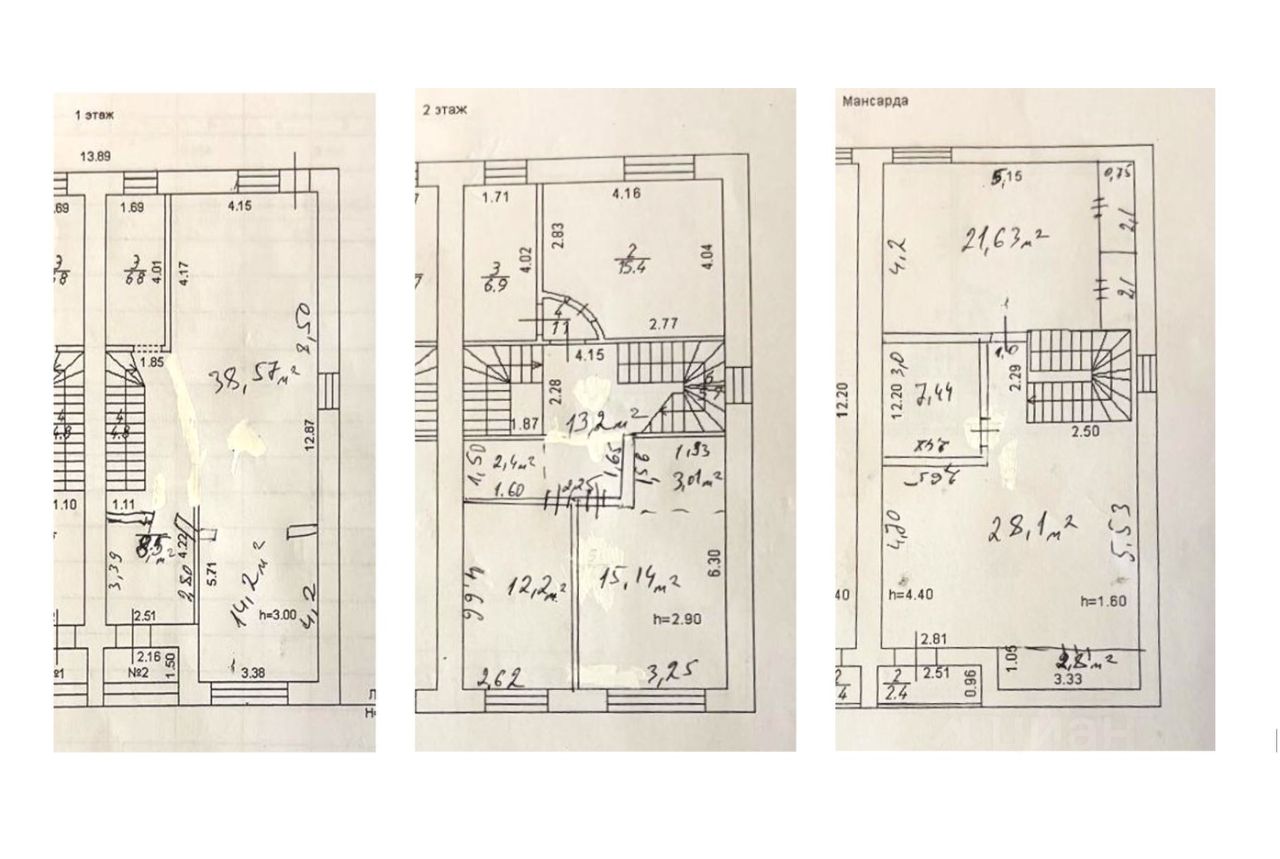 1 этаж
13.89
.69
1.69
4.15
3
6.8
3
6.8
4.01
4.17
8,50
1.85
38,57м²
4
4.8
4
4.8
12.87
1.10
1.11
8,5
м²
4.22
3,39
2,80
5.71
14,2м²
4,2
h=3.00
2.51
2.16
1.50
№1
№2
3.38
2 этаж
1.71
4.16
2.83
4.02
4.04
2
15.4
3
6.9
4
1.1
2.77
4.15
2.28
1.87
13,2м²
1,50
2,4м²
1.60
2,25
1,65
1,56
1,93
3,01м²
4,66
12,2м²
15,14м²
6.30
h=2.90
2,62
3,25
Мансарда
5,15
0,75
4,2
21,63м²
2,1
2,1
1,6
2.29
3,0
12.20
12.20
7,44
2.50
4,70
28,1м²
5,53
40
h=4.40
h=1.60
2.81
2.51
0.96
1.05
2,8м²
3.33
2
2.4